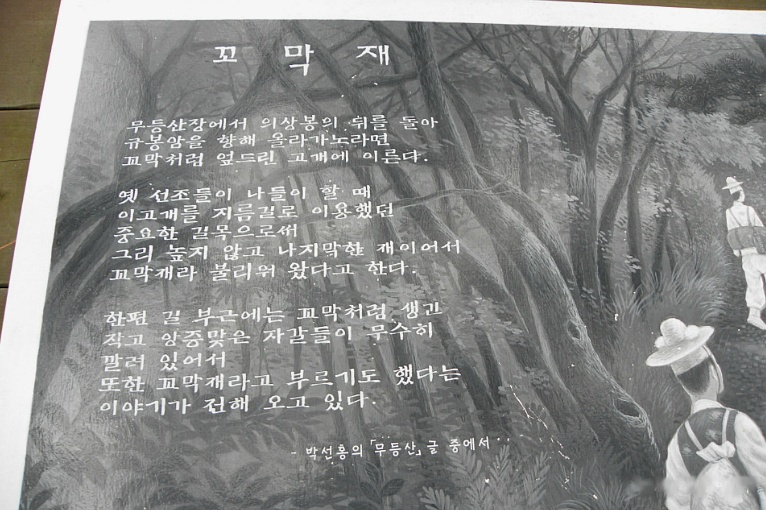 꼬막재
무등산장에서 의상봉의 뒤를 돌아
규봉암을 향해 올라가노라면
꼬막처럼 엎드린 고개에 이른다.
옛 선조들이 나들이 할 때
이고개를 지름길로 이용했던
중요한 길목으로써
그리 높지 않고 나지막한 재이어서
꼬막재라 불리워 왔다고 한다.
한편 길 부근에는 꼬막처럼 생긴
작고 앙증맞은 자갈들이 무수히
깔려 있어서
또한 꼬막재라고 부르기도 했다는
이야기가 전해 오고 있다.
- 박선홍의 「무등산」 글 중에서